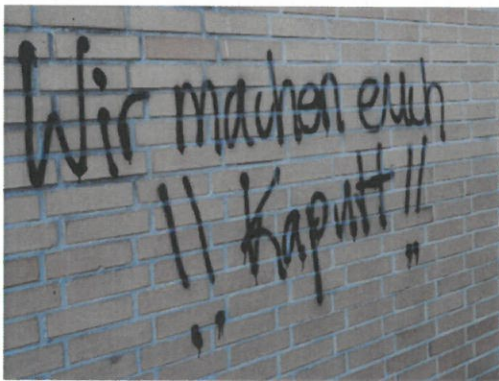 Wir machen euch
!! Kaputt !!